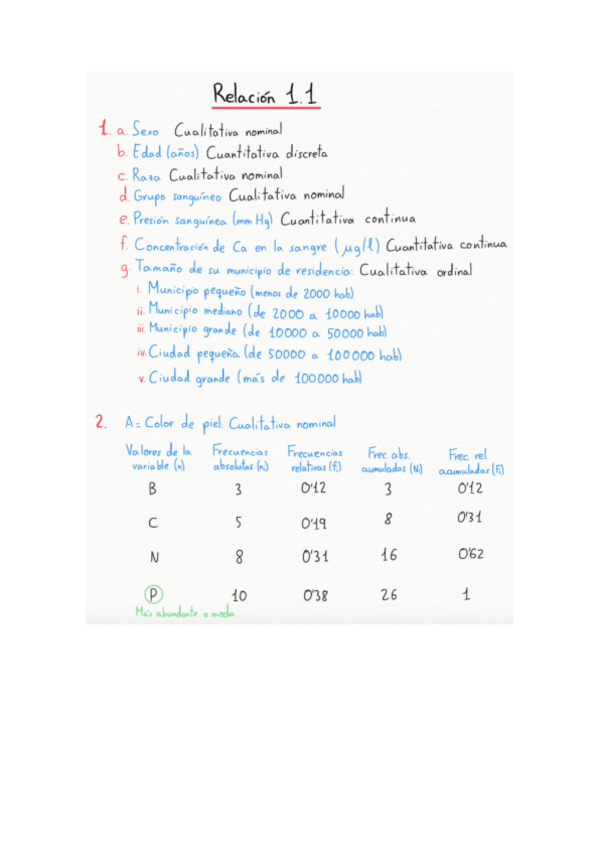 Relación 1.1
1. a. Sexo Cualitativa nominal
b. Edad (años) Cuantitativa discreta
c. Raza Cualitativa nominal
d. Grupo sanguíneo Cualitativa nominal
e. Presión sanguínea (mm Hg) Cuantitativa continua
f. Concentración de Ca en la sangre (µg/l) Cuantitativa continua
g. Tamaño de su municipio de residencia: Cualitativa ordinal
i. Municipio pequeño (menos de 2000 hab)
ii. Municipio mediano (de 2000 a 10000 hab)
iii. Municipio grande (de 10000 a 50000 hab)
iv. Ciudad pequeña (de 50000 a 100000 hab)
v. Ciudad grande (más de 100000 hab)
2. A = Color de piel: Cualitativa nominal
Valores de la Frecuencias Frecuencias Frec. abs. Frec. rel.
variable (xᵢ) absolutas (nᵢ) relativas (fᵢ) aumuladas (Nᵢ) acumuladas (Fᵢ)
B 3 0'12 3 0'12
C 5 0'19 8 0'31
N 8 0'31 16 0'62
P 10 0'38 26 1
Más abundante o moda